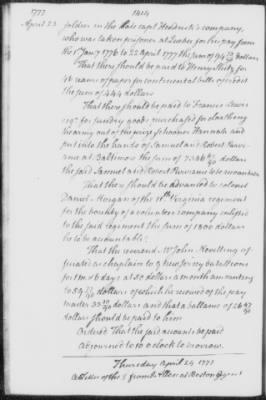 1777
1414
April 23
soldier in the late capt Hendrick's company,
who was taken prisoner at Quebec for his pay from
the 1st Jany 1776 to 22 April 1777 the sum of dollars
That there should be paid to Henry
46 reams of paper for continental bills of credit
the sum of 444 dollars
That there should be paid to Francis
for sundry goods purchased for cloathing
out of the prize schooner Hannah and
put into the hands of Samuel and Robert Purvi-
ance at Baltimore the sum of dollars
the said Samuel and Robert Purviance to be accountable
That there should be advanced to colonel
Daniel Morgan of the 11th Virginia regiment
for the bounty of a volunteer company
to the said regiment the sum of dollars
he to be accountable;
That the reverend Mr John
as chaplain to 3 new jersey battalions
for 1 m & 6 days at 50 dollars a month amounting
to 59 dollars of which he received of the pay
master 33 dollars and that a ballance of 26
dollars should be paid to him
Ordered That the said accounts be paid
adjourned to 10 o'clock to morrow.
Thursday April 24 1777
A letter of the from at Boston